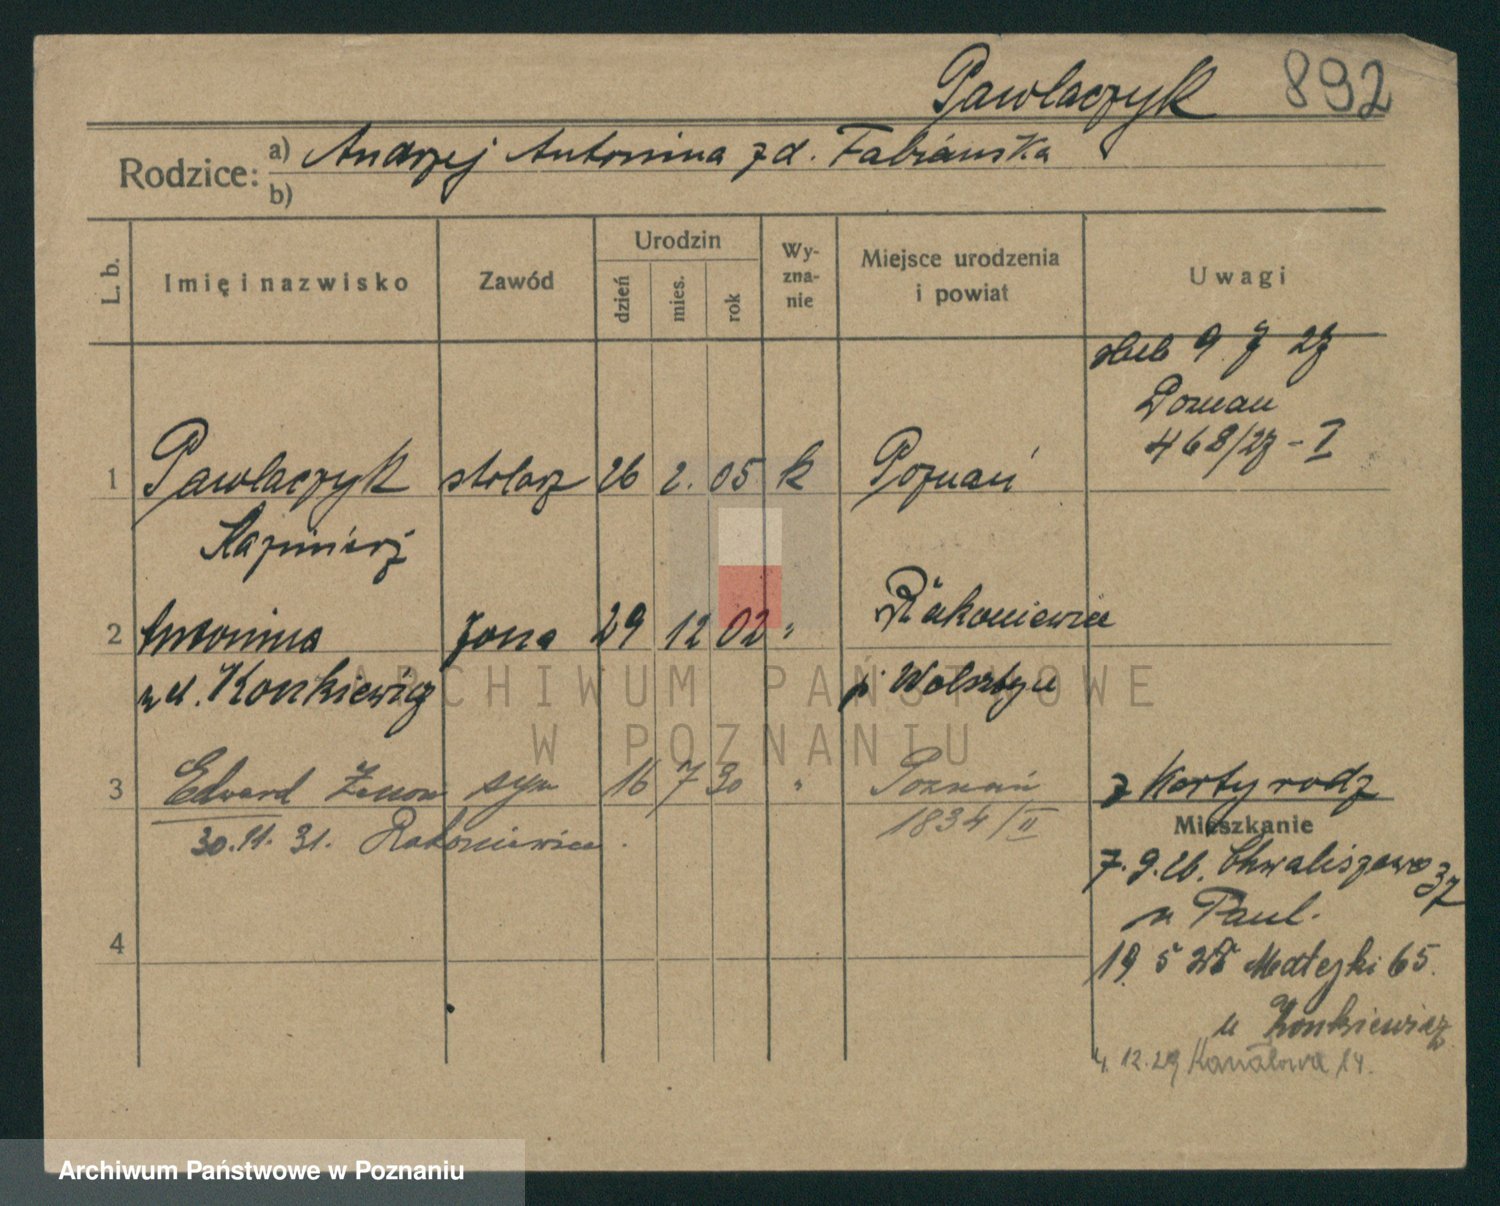 Pawlaczyk 892
Rodzice: a) Andrzej Antonina zd. Fabiańska
b)
L. b. Imię i nazwisko Zawód Urodzin dzień mies. rok Wy-zna-nie Miejsce urodzenia i powiat Uwagi
ślub 9 7 27
Poznań
468/27 - I
1 Pawlaczyk stolarz 26 2. 05 k Poznań
Kazimierz
2 Antonina żona 29 12 02 " Rakoniewice
z d. Konkiewicz p. Wolsztyn
3 Edward Zenon syn 16 7 30 " Poznań z Karty rodz
30.11. 31. Rakoniewice. 1834/II
Mieszkanie
7.9.26. Chwaliszewo 37
u Paul.
4
19 5 Matejki 65.
u Konkiewicz
4.12.29 Kanałowa 14.
ARCHIWUM PAŃSTWOWE
W POZNANIU
Archiwum Państwowe w Poznaniu